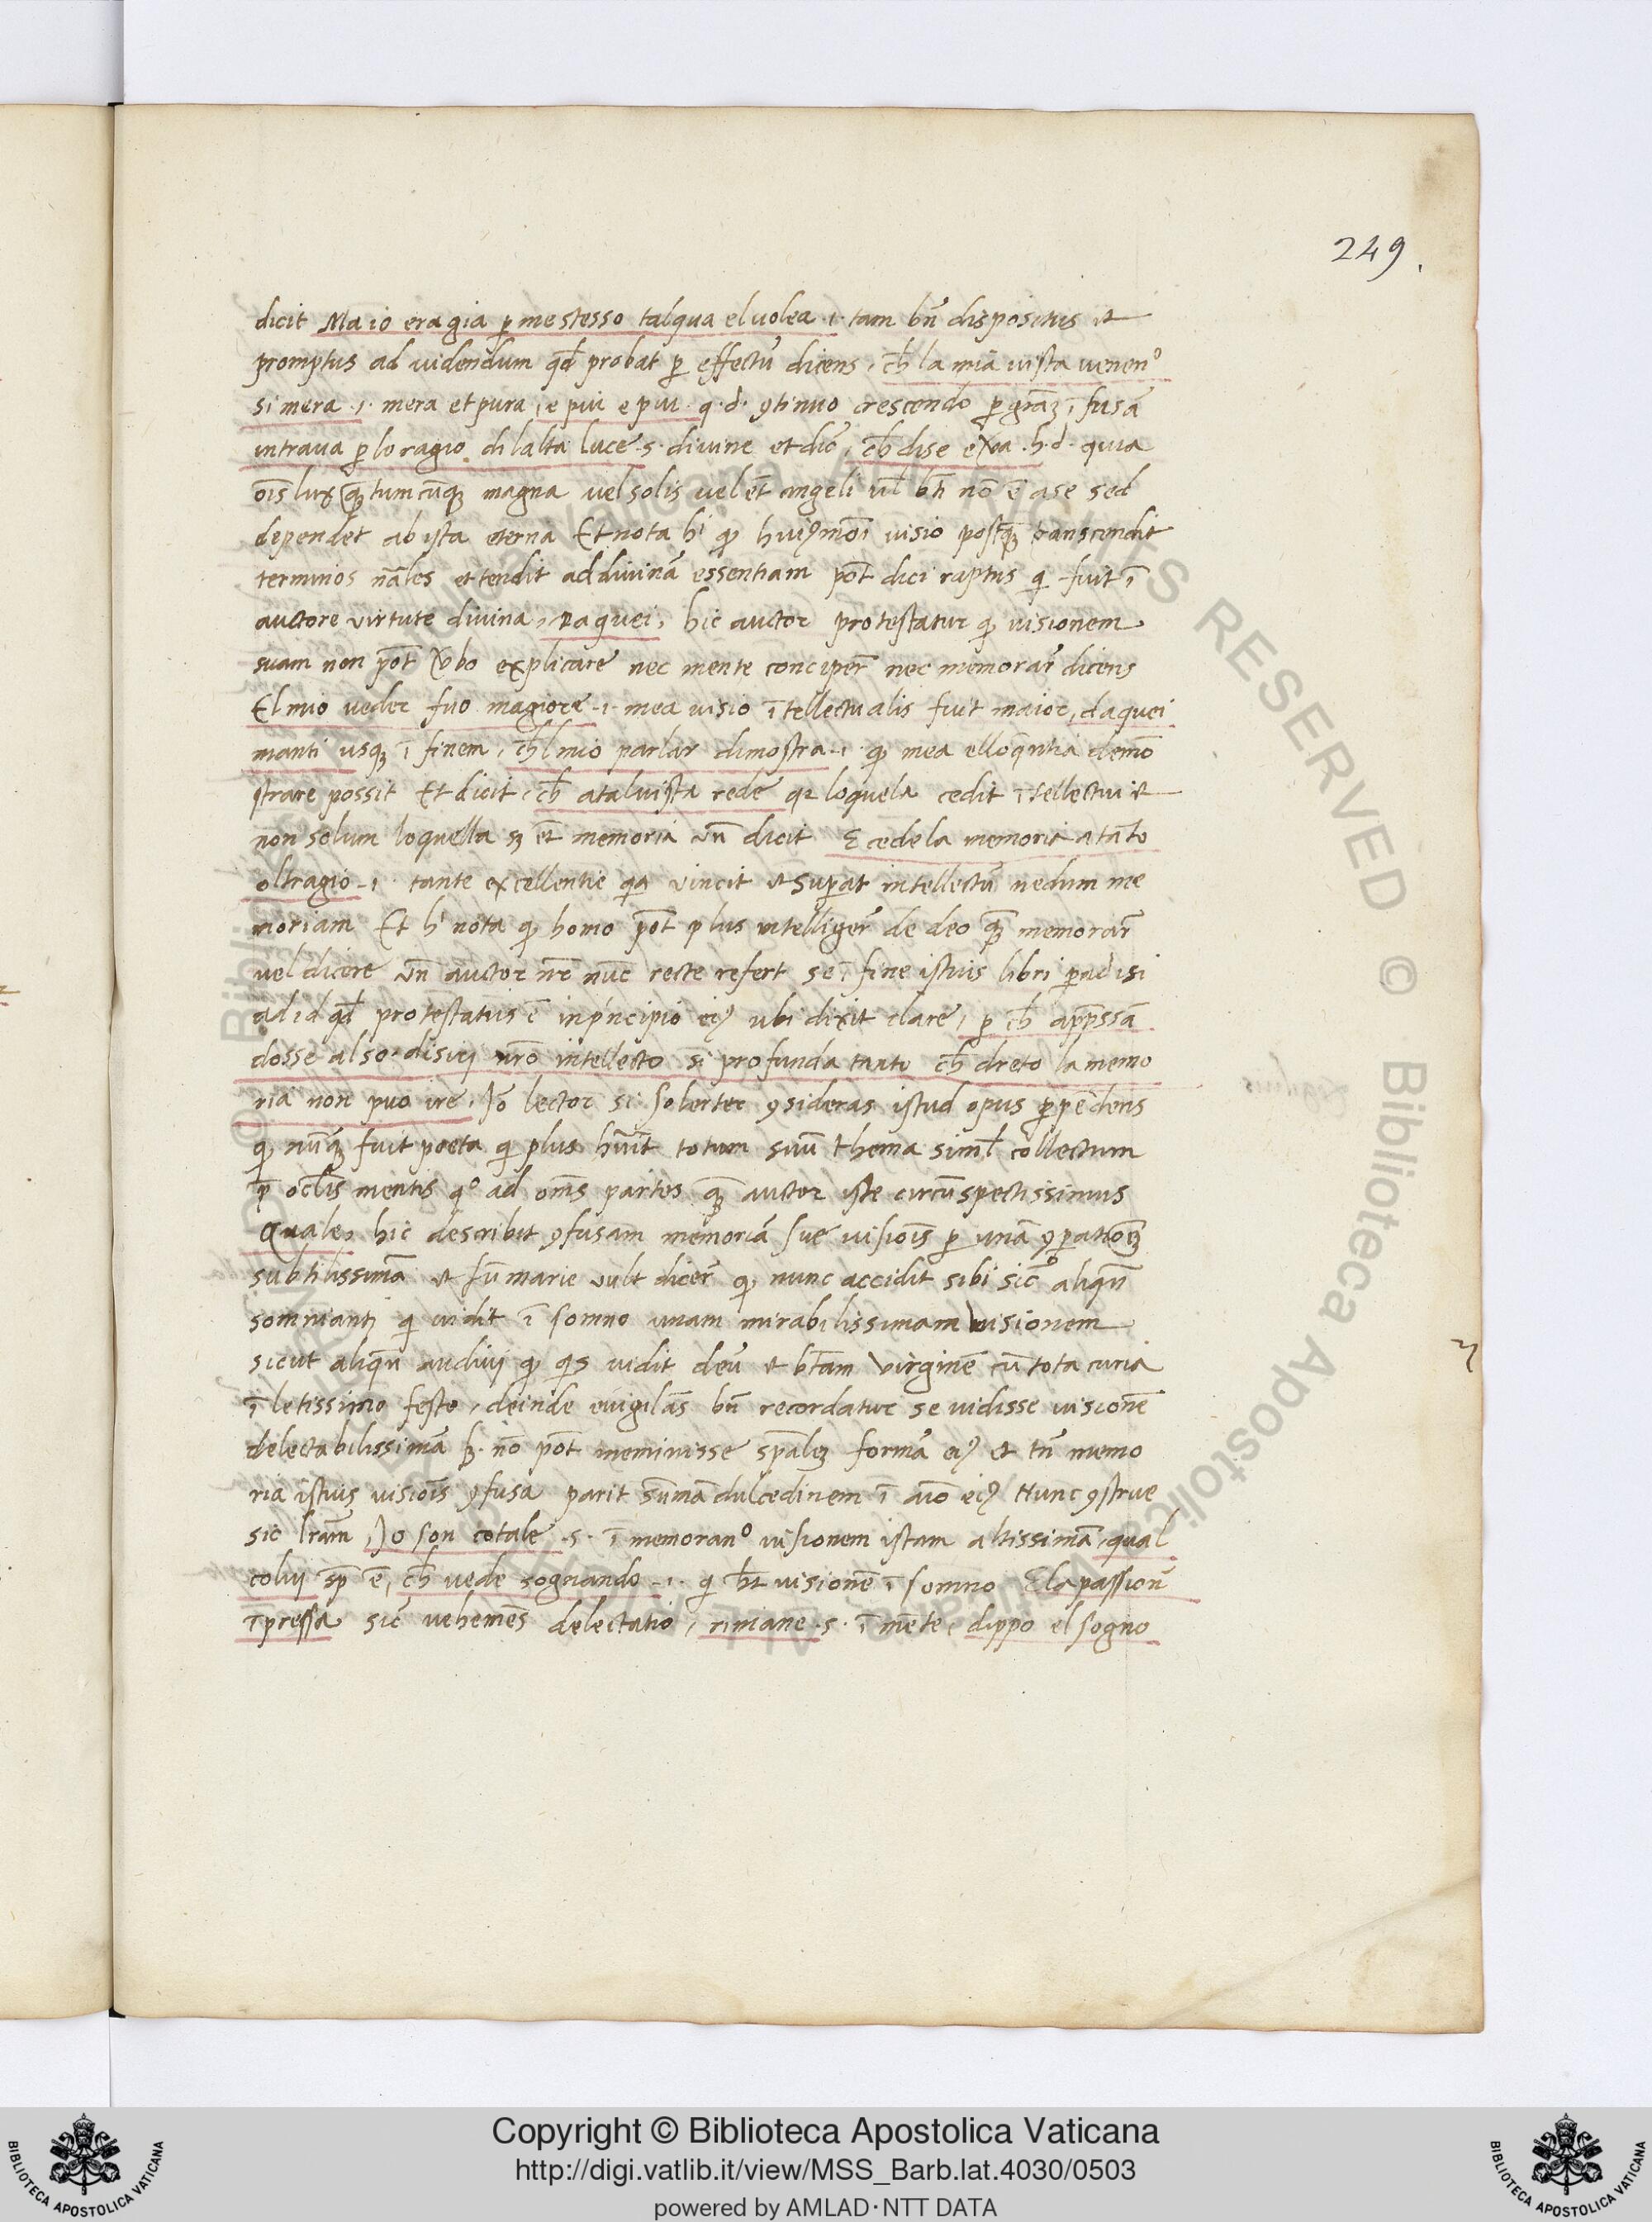 249.
dicit Ma io era gia p̱ me stesso tal qua el volea .i. tam bn̄ dispositus et
promptus ad uidendum qd̄ probat p̱ effectū dicens, ch̄ la mia uista uenen.º
si mera .i. mera et pura, e piu e piu . q. d. ꝯtinuo crescendo p̱ grāꝫ ī fusā
intraua p̱ lo ragio di lalta luce .s. divine et dic̄, ch̄ dise e ṽa . h. d. quia
oīs lux quātumcūqꝫ magna uel solis uel et̄ angeli ul̄ bt̄i nō ē a se sed
dependet ab ista eterna Et nota hⁱ ꝙ huiꝰmōi visio postqꝫ transcendit
terminos nāles et tendit ad divinā essentiam pōt dici raptus qi fuit ī
auctore virtute divina, Da quei, hic auctor protestatur ꝙ uisionem
suam non pōt ṽbo explicare nec mente conciper̄ nec memorar̄ dicens
El mio veder fuo magiore .i. mea uisio ītellectualis fuit maior, da quei
manti usqꝫ ī finem, ch̄l mio parlar dimostra .i. ꝙ mea elloq̄ntia demō
strare possit Et dicit, ch̄ atal uista cede qꝛ loquela cedit ītellectui et
non solum loquella sꝫ et̄ memoria un̄ dicit E cede la memoria a tāto
oltragio .i. tante excellentie qia vincit et sup̱at intellectū nedum me
moriam Et hⁱ nota ꝙ homo pōt plus intelliger̄ de deo qꝫ memorar̄
vel dicere un̄ auctor nr̄ nūc recte refert se ī fine istius libri p̱adisi
ad id qd̄ protestatus ē in pⁱncipio eiꝰ ubi dixit clare, p̱ ch̄ app̄ssā
dosse also disiry nr̄o intellecto si profunda tanto ch̄ dreto la memo
ria non puo ire, Iō lector si solerter ꝯsideras istud opus p̱pēdens
ꝙ nūqꝫ fuit poeta qi plus hūit totum suū thema simĺ collectum
p̄ oc̄lis mentis qº ad om̄s partes qꝫ auctor iste circūspectissimus
Quale, hic describit ꝯfusam memoriā sue uisiōis p̱ unā ꝯp̱atiōꝫ
subtilissimā et sūmarie vult dicer̄ ꝙ nunc accidit sibi sicº aliqn̄
somnianti qi uidit ī somno unam mirabilissimam uisionem
sicut aliqn̄ audivi ꝙ qis uidit deū et btām virginē cū tota curia
ī letissimo festo, deinde euigilās bn̄ recordatur se uidisse uisionē
delectabilissimā sꝫ nō pōt meminisse sp̄alēꝫ formā eiꝰ et tn̄ memo
ria istius visiōis ꝯfusa parit sūmā dulcedinem ī aīo eiꝰ Nunc ꝯstrue
sic lrām, Io son cotale .s. ī memoranº uisionem istam altissimā, qual
colui sp̄ ē, ch̄ vede sognando .i. qi hēt visionē ī somno E la passion̄
īpressa sic̄ vehemēs delectatio, rimane .s. ī mēte, dippo el sogno
Copyright © Biblioteca Apostolica Vaticana
http://digi.vatlib.it/view/MSS_Barb.lat.4030/0503
powered by AMLAD·NTT DATA